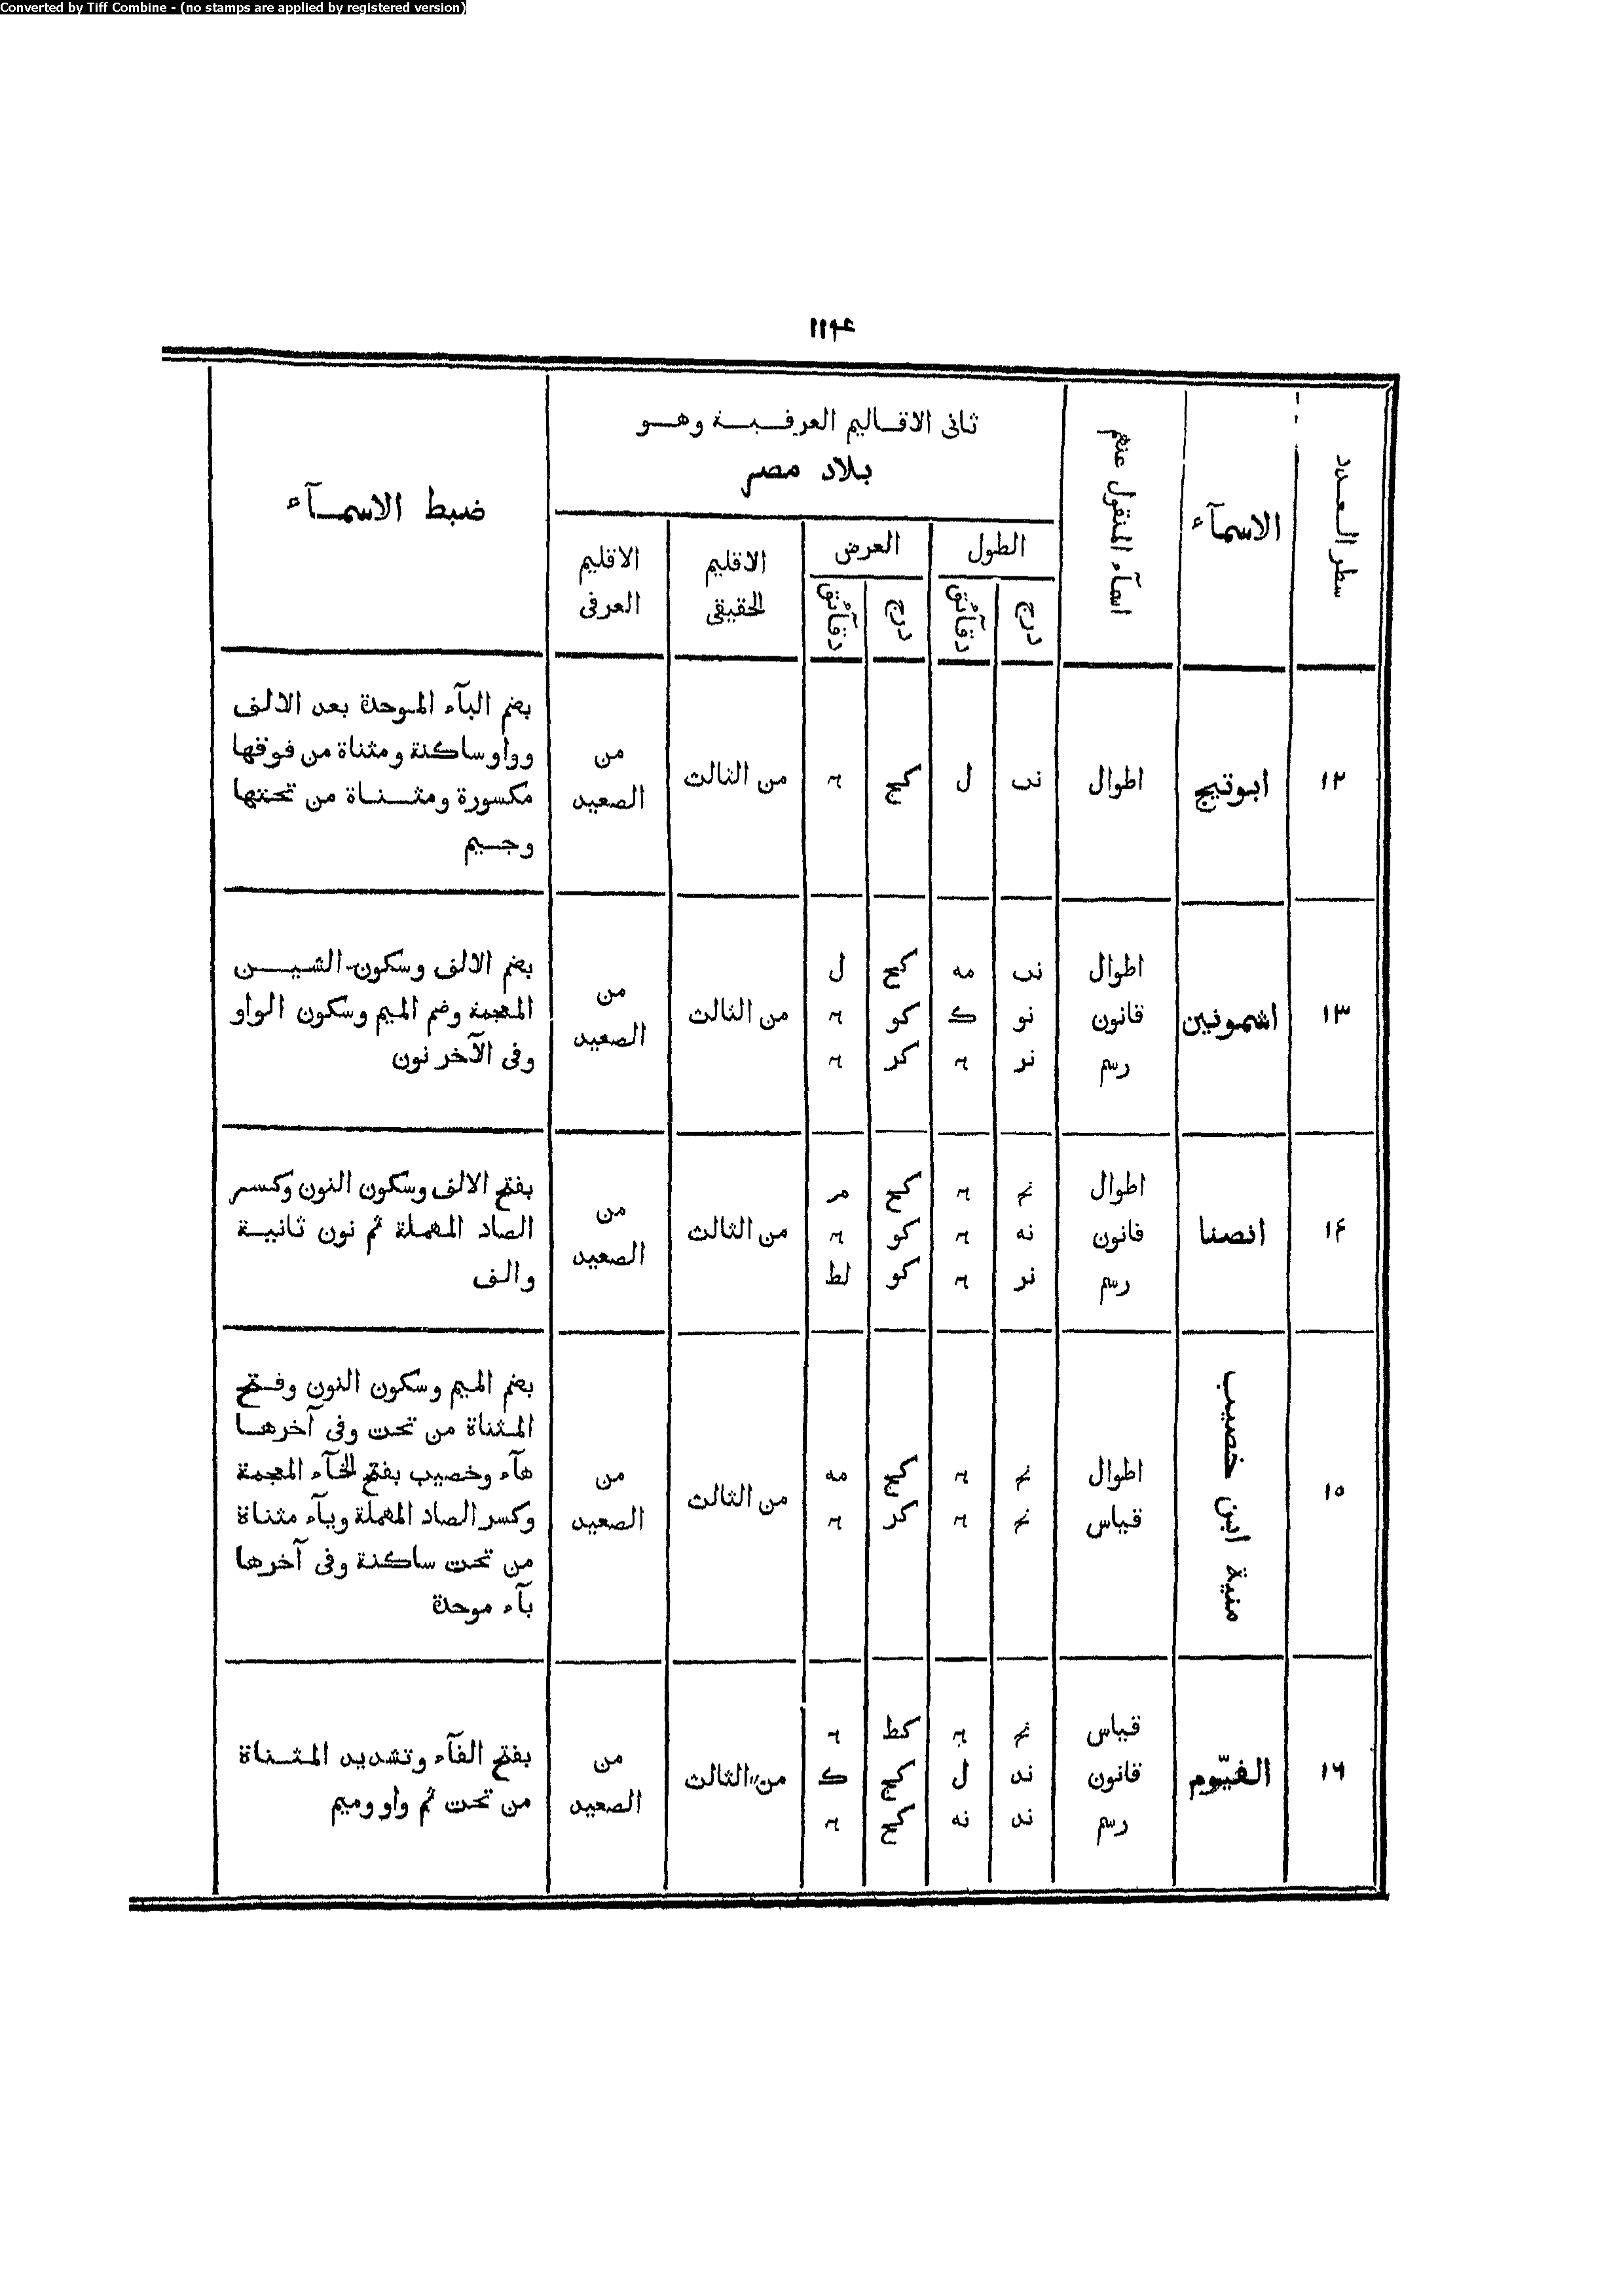 Converted by Tiff Combine - (no stamps are applied by registered version)
١١۴
سطر العدد
الاسمآء
اسمآء المنقول عنهم
ثانى الاقاليم العرفية وهو
بلاد مصر
ضبط الاسمآء
الطول
العرض
الاقليم
الحقيقى
الاقليم
العرفى
درج
دقآئق
درج
دقآئق
١٢
ابوتيج
اطوال
نب ل
من الثالث
من
الصعيد
بضم البآء الموحدة بعد الالف
وواو ساكنة ومثناة من فوقها
مكسورة ومثناة من تحتها
وجيم
١٣
اشمونين
اطوال نب مه كح ل
قانون نو ك كو
رسم نر كر
من الثالث
من
الصعيد
بضم الالف وسكون الشين
المعجمة وضم الميم وسكون الواو
وفى الآخر نون
١۴
انصنا
اطوال كح مر
قانون نه كو
رسم نر كو لط
من الثالث
من
الصعيد
بفتح الالف وسكون النون وكسر
الصاد المهملة ثم نون ثانية
والف
١٥
منية ابن خصيب
اطوال كح مه
قياس كر
من الثالث
من
الصعيد
بضم الميم وسكون النون وفتح
المثناة من تحت وفى آخرها
هآء وخصيب بفتح الخآء المعجمة
وكسر الصاد المهملة ويآء مثناة
من تحت ساكنة وفى آخرها
بآء موحدة
١٦
الفيّوم
قياس كط
قانون ند ل كح ك
رسم ند نه كح
من الثالث
من
الصعيد
بفتح الفآء وتشديد المثناة
من تحت ثم واو وميم